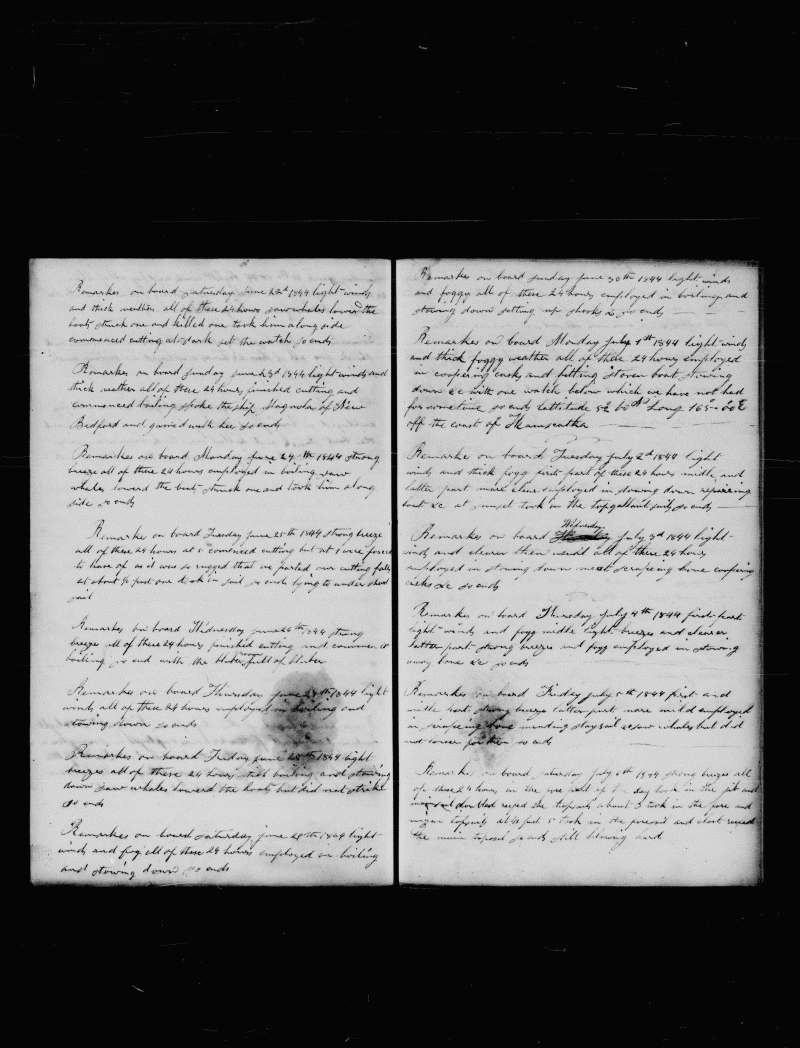 Remarks on board saturday june 22d 1844 light winds
and thick weather all of these 24 hours saw whales lowerd the
boats struck one and killed one took him along side
commenced cutting at dark set the watch so ends
Remarks on board sunday june 23d 1844 light winds and
thick weather all of these 24 hours finished cutting and
commenced boiling spoke the ship Magnola of New
Bedford and gamed with her so ends
Remarks on board Monday june 24th 1844 strong
breeze all of these 24 hours employed in boiling saw
whales lowerd the boats struck one and took him along
side so ends
Remarks on board Tuesday june 25th 1844 strong breeze
all of these 24 hours at 5 commenced cutting but at 8 were forced
to heave of as it was so rugged that we parted our cutting falls
at about ½ past one took in sail so ends lying to under short
sail
Remarks on board Wednesday june 26th 1844 strong
breeze all of these 24 hours finished cutting and commenced
boiling so end with the bluber room full of bluber
Remarks on board Thursday june 27th 1844 light
winds all of these 24 hours employed in boiling and
stowing down so ends
Remarks on board Friday june 28th 1844 light
breezes all of these 24 hours still boiling and stowing
down saw whales lowerd the boats but did not strike
so ends
Remarks on board saturday june 29th 1844 light
winds and fog all of these 24 hours employed in boiling
and stowing down so ends
Remarks on board sunday june 30th 1844 light winds
and foggy all of these 24 hours employed in boiling and
stowing down setting up shooks &c so ends
Remarks on board Monday july 1st 1844 light winds
and thick foggy weather all of these 24 hours employed
in coopering casks and fitting stoven boat stowing
down &c with one watch below which we have not had
for sometime so ends Lattitude Long
off the coast of Kamscatka
Remarks on board Tuesday july 2d 1844 light
winds and thick fogg first part of these 24 hours midle and
latter part more clear employed in stowing down repairing
boat &c at sunset took in the topgallant sails so ends
Remarks on board Wednesday july 3d 1844 light
winds and clearer than usual all of these 24 hours
employed in stowing down meat scrapeing bone coopering
casks &c so ends
Remarks on board Thursday july 4th 1844 first part
light winds and fogg midle light breezes and clearer
latter part strong breezes and fogg employed in stowing
away bone &c so ends
Remarks on board Friday july 5th 1844 first and
midle part strong breeze latter part more mild employed
in scrapeing bone mending staysail saw whales but did
not lower for them so ends
Remarks on board saturday july 6th 1844 strong breezes all
of these 24 hours in the fore part of the day took in the jib and
mainsail doubled reefed the topsails about 3 took in the fore and
mizen topsails at ½ past 5 took in the foresail and close reefed
the main topsail so ends still blowing hard